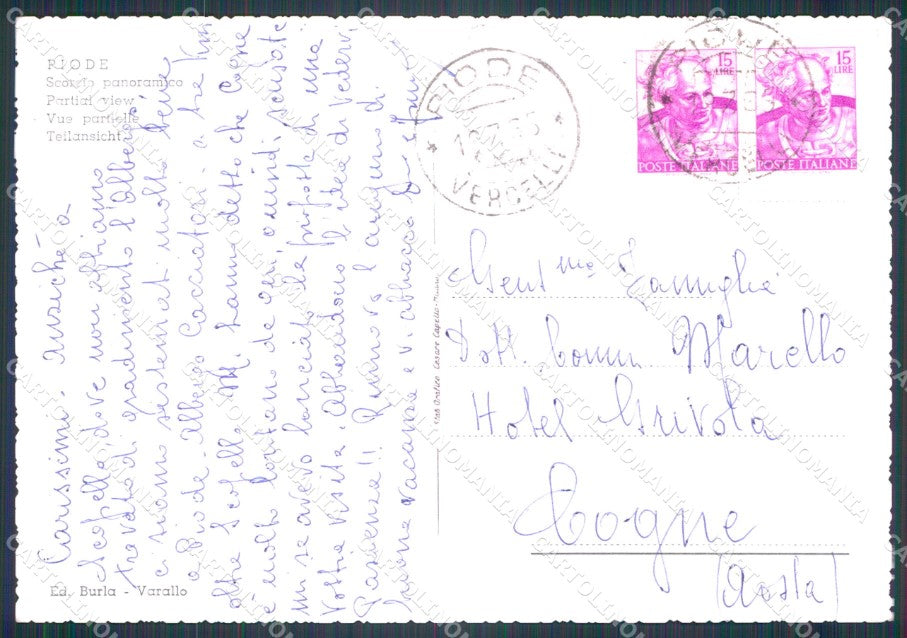 RIODE
Scorcio panoramico
Partial view
Vue partielle
Teilansicht
Carissimi. Anziché a
Scopello dove non abbiamo
trovato di gradimento l'albergo
ci siamo sistemati molto bene
a Piode - Albergo Cacciatori - a tre km
oltre Scopello. Mi hanno detto che Cogne
è molto lontano da qui, quindi scusate
mi se avevo lanciato la proposta di una
Vostra visita. Abbandono l'idea di vedervi
Pazienza!! Rinnovo l'augurio di
buone vacanze e vi abbraccio
Ed. Burla - Varallo
PIODE
VERCELLI
15 LIRE
POSTE ITALIANE
15 LIRE
POSTE ITALIANE
Stab. Grafico Cesare Capello - Milano
Gent.ma Famiglia
Dott. Comm. Marello
Hotel Grivola
Cogne
(Aosta)
CARTOLINOMANIA